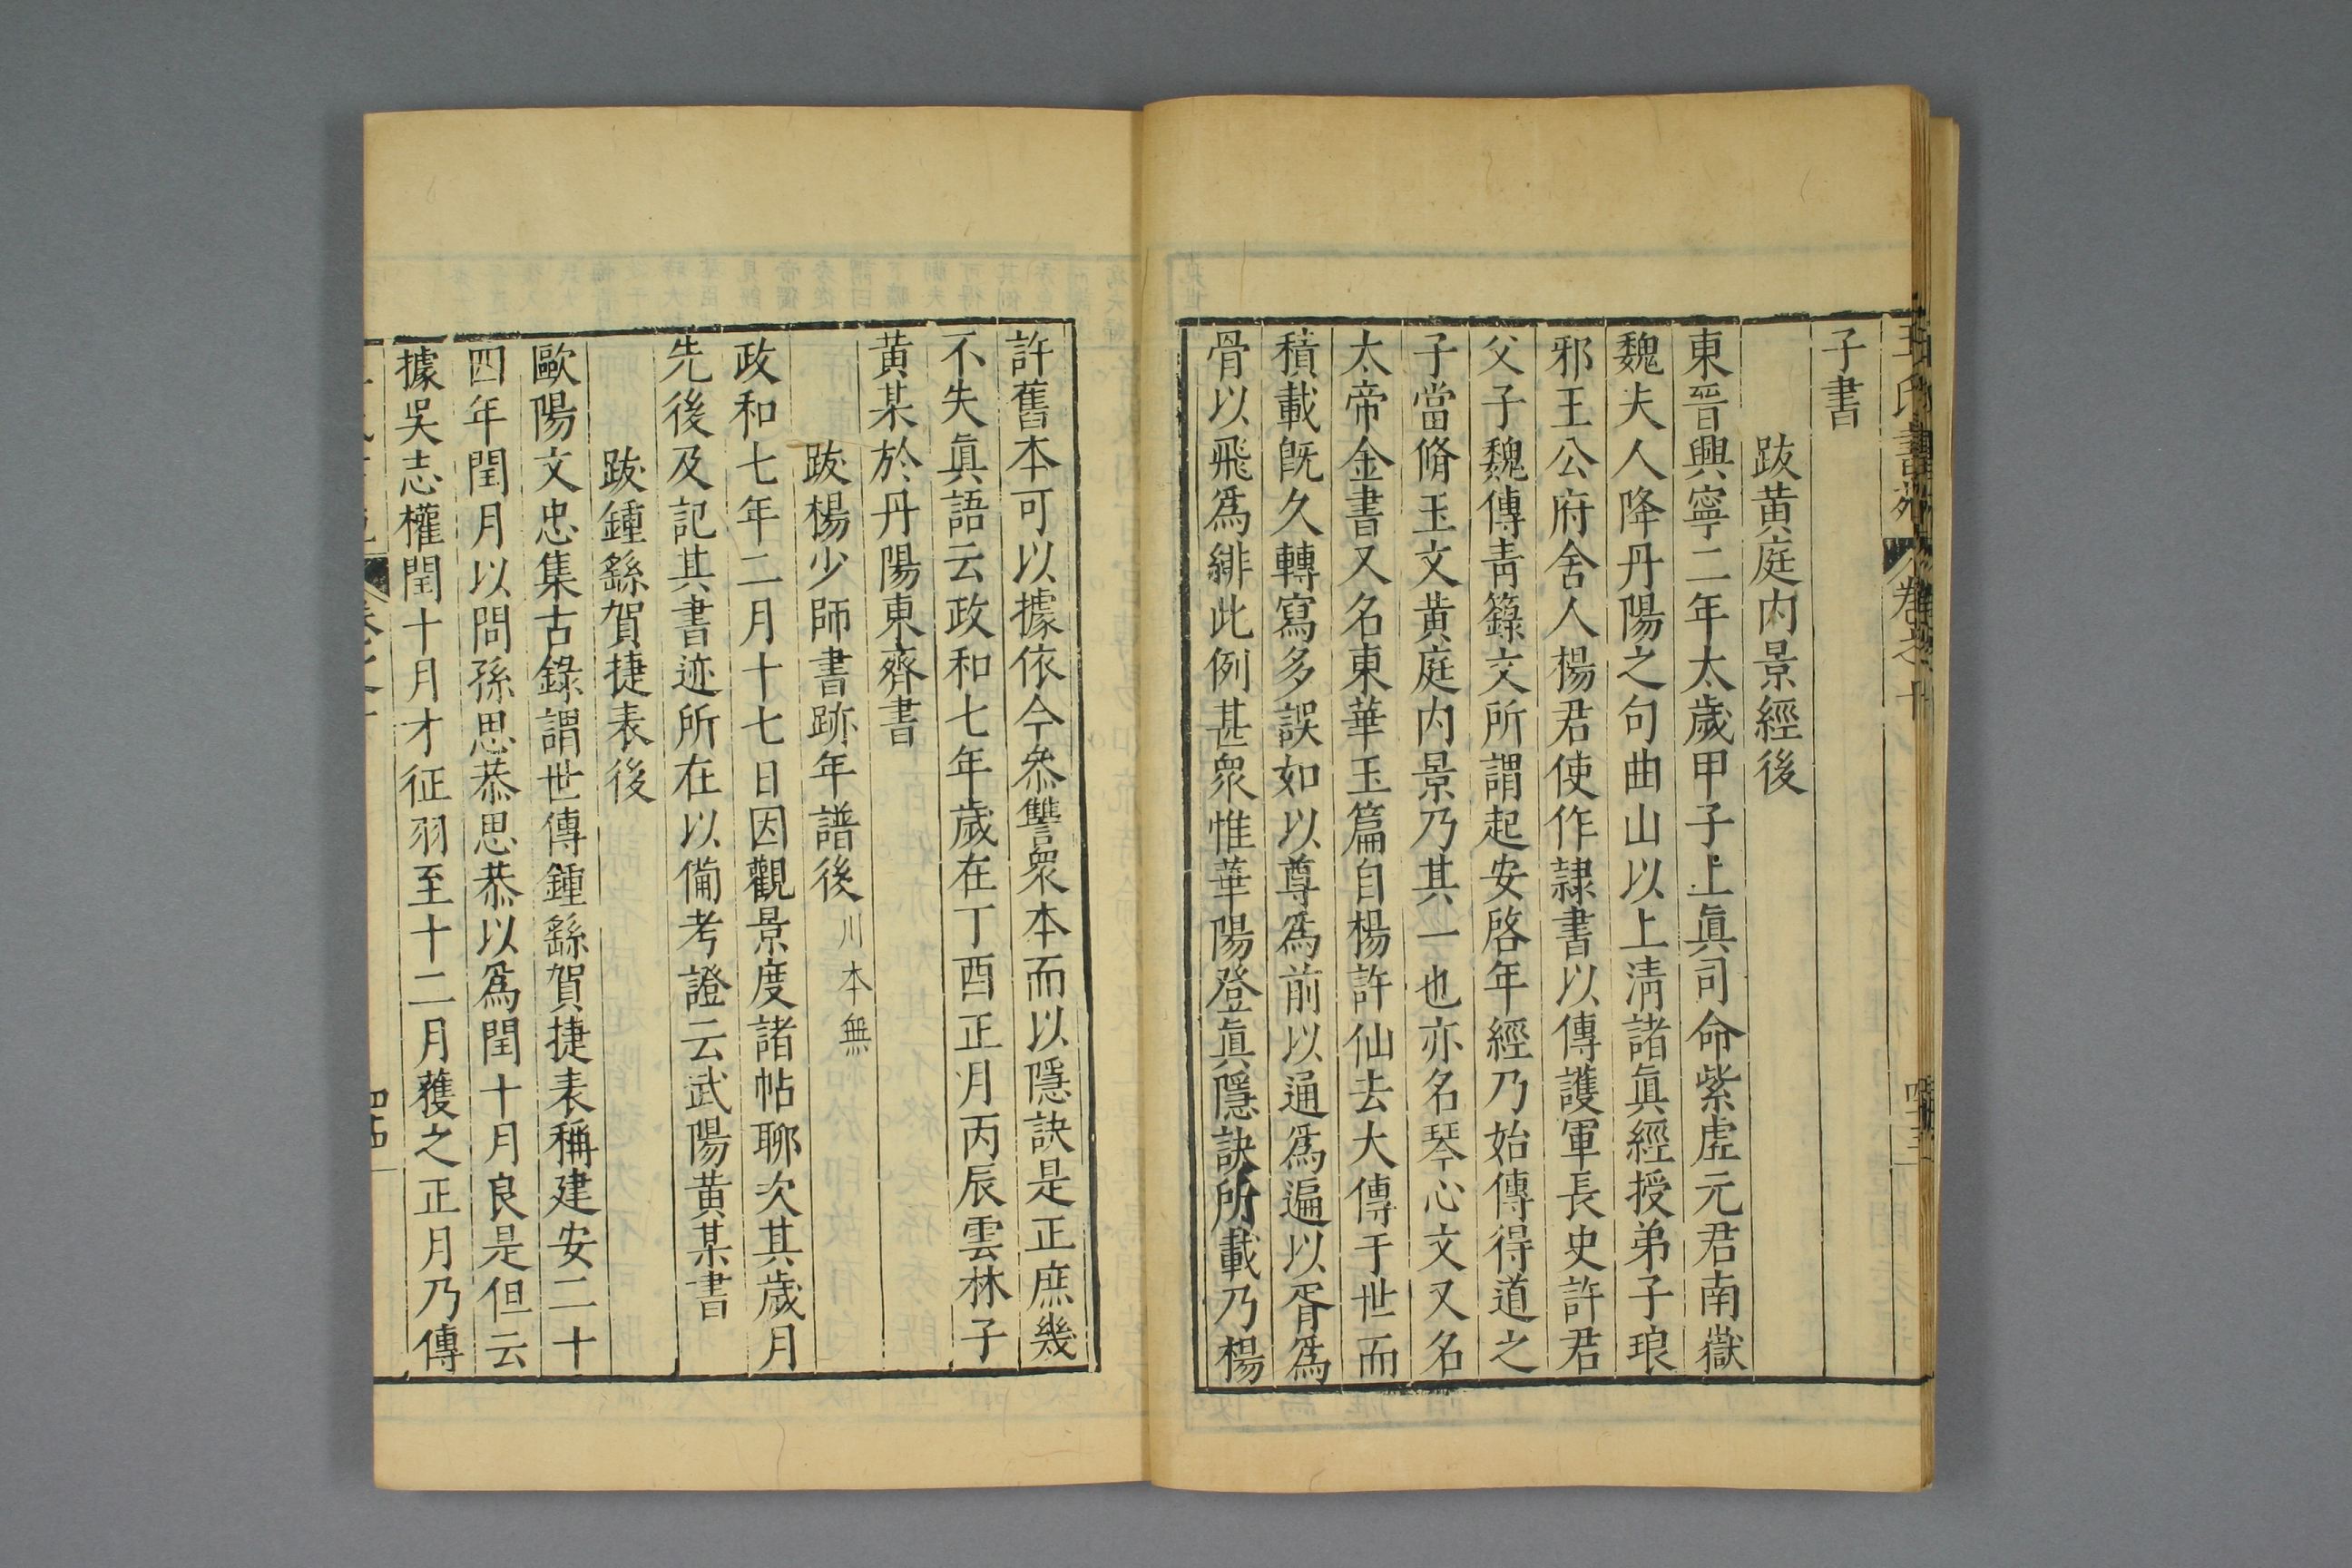 子書
跋黃庭内景經後
東晉興寧二年太歲甲子上眞司命紫虛元君南嶽
魏夫人降丹陽之句曲山以上淸諸眞經授弟子琅
邪王公府舍人楊君使作隷書以傳護軍長史許君
父子魏傳靑籙文所謂起安啓年經乃始傳得道之
子當脩玉文黃庭内景乃其一也亦名琴心文又名
太帝金書又名東華玉篇自楊許仙去大傳于世而
積載旣久轉寫多誤如以尊爲前以通爲遍以胥爲
骨以飛爲緋此例甚衆惟華陽登眞隱訣所載乃楊
許舊本可以據依今叅讐衆本而以隱訣是正庶幾
不失眞語云政和七年歲在丁酉正月丙辰雲林子
黃某於丹陽東齊書
跋楊少師書跡年譜後川本無
政和七年二月十七日因觀景度諸帖聊次其歲月
先後及記其書迹所在以備考證云武陽黃某書
跋鍾繇賀捷表後
歐陽文忠集古錄謂世傳鍾繇賀捷表稱建安二十
四年閏月以問孫思恭思恭以爲閏十月良是但云
據吳志權閏十月才征羽至十二月獲之正月乃傳